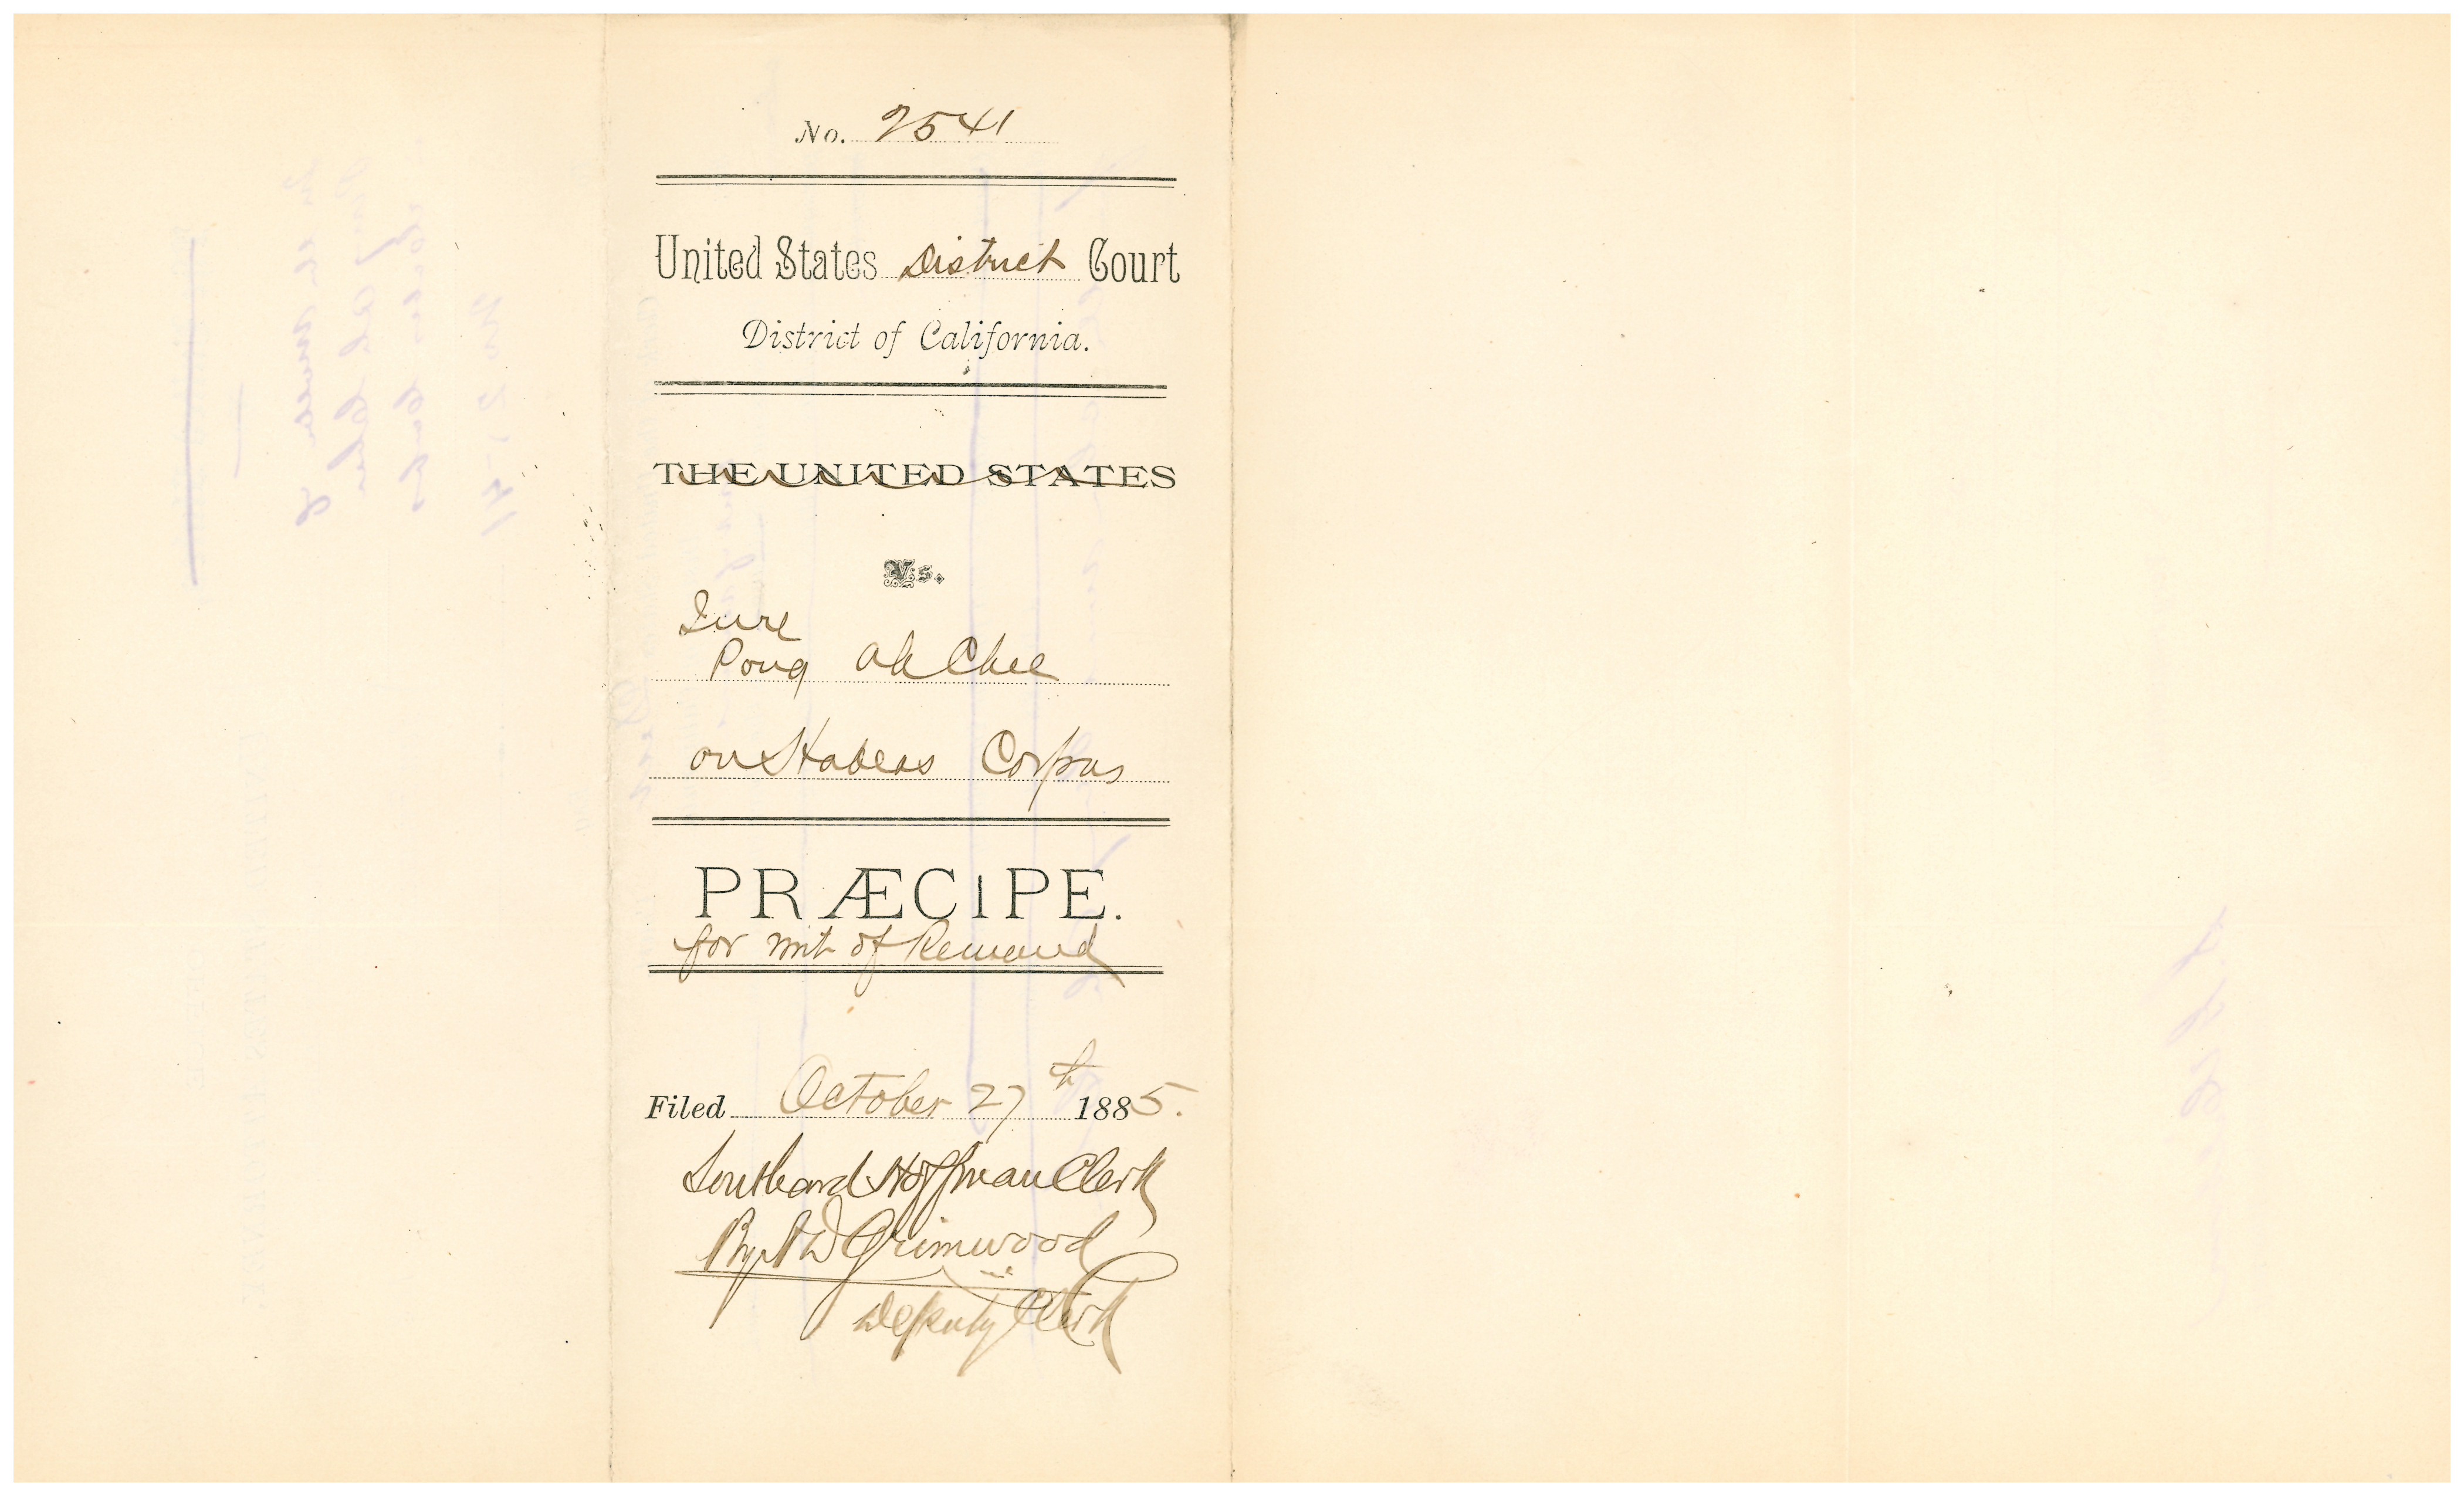 No. 2541
United States District Court
District of California.
THE UNITED STATES
Vs.
In re
Pong Ah Chee
on Habeas Corpus
PRÆCIPE.
for writ of Remand
Filed October 27th 1885.
Southard Hoffman Clerk
By Grimwood
Deputy Clerk